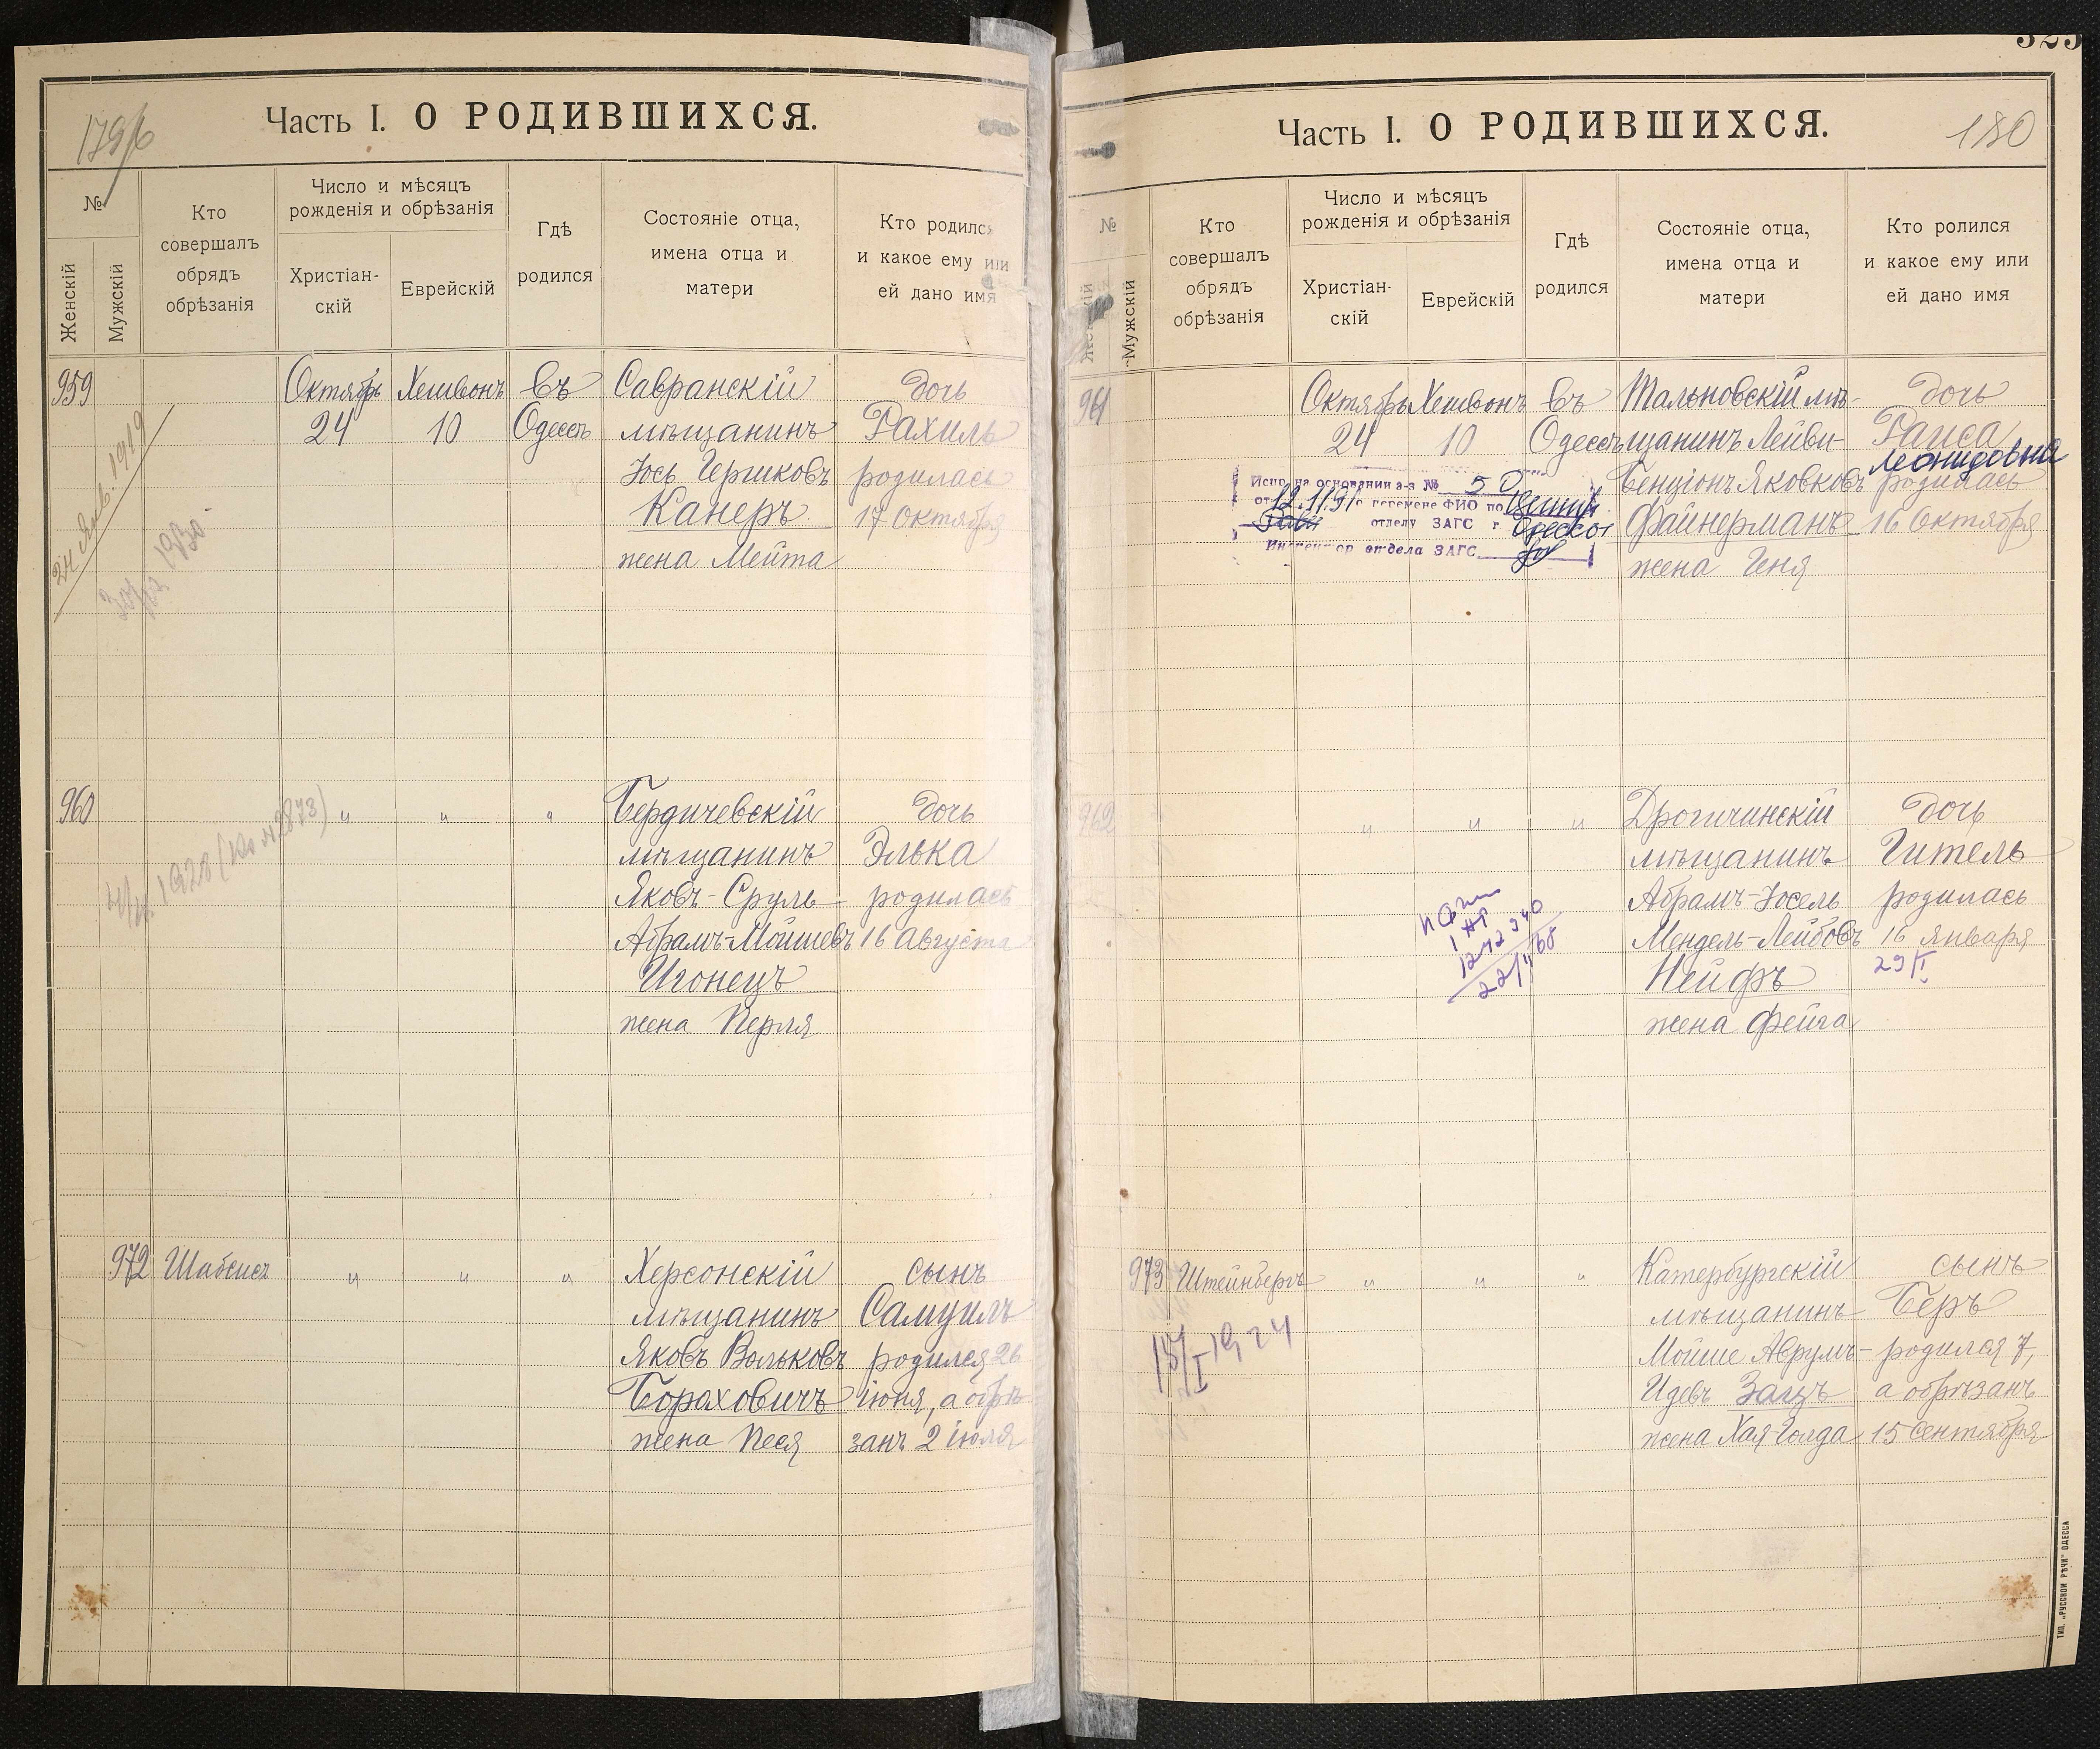 179/б
Часть I. О РОДИВШИХСЯ.
№
Женскій
Мужскій
Кто
совершалъ
обрядъ
обрѣзанія
Число и мѣсяцъ
рожденія и обрѣзанія
Христіан-
скій
Еврейскій
Гдѣ
родился
Состояніе отца,
имена отца и
матери
Кто родился
и какое ему или
ей дано имя
959
Октябрь
24
Хешвонъ
10
въ
Одессѣ
Савранскій
мѣщанинъ
Іось Гершковъ
Канеръ
жена Мейта
дочь
Рахиль
родилась
17 Октября
24 Янв. 1919
1930
960
"
"
"
Бердичевскій
мѣщанинъ
Яковъ-Сруль
Абрамъ-Мойшевъ
Игонецъ
жена Перля
дочь
Элька
родилась
16 Августа
1928
972
Шабсисъ
"
"
"
Херсонскій
мѣщанинъ
Яковъ Вольковъ
Бораховичъ
жена Песя
сынъ
Самуилъ
родился 26
іюня, а обрѣ-
занъ 2 іюля
323
Часть I. О РОДИВШИХСЯ.
180
№
Мужскій
Кто
совершалъ
обрядъ
обрѣзанія
Число и мѣсяцъ
рожденія и обрѣзанія
Христіан-
скій
Еврейскій
Гдѣ
родился
Состояніе отца,
имена отца и
матери
Кто ролился
и какое ему или
ей дано имя
961
Октябрь
24
Хешвонъ
10
въ
Одессѣ
Тальновскій мѣ-
щанинъ Лейви-
Бенціонъ Яковковъ
Файнерманъ
жена Геня
дочь
Раиса
Леонидовна
родилась
16 Октября
Испр. на основании а-з № 50
от 12.11.91 о перемене ФИО по
отделу ЗАГС г. Одессы
Инспектор отдела ЗАГС
962
"
"
"
Дрогичинскій
мѣщанинъ
Абрамъ-Іосель
Мендель-Лейбовъ
Нейфъ
жена Фейга
дочь
Гитель
родилась
16 Января
29/I
973
Штейнбергъ
"
"
"
Катербургскій
мѣщанинъ
Мойше Аврумъ-
Идевъ Зацъ
жена Хая Голда
сынъ
Беръ
родился 7,
а обрѣзанъ
15 Сентября
15/I 1924
ТИП. „РУССКОЙ РѢЧИ" ОДЕССА